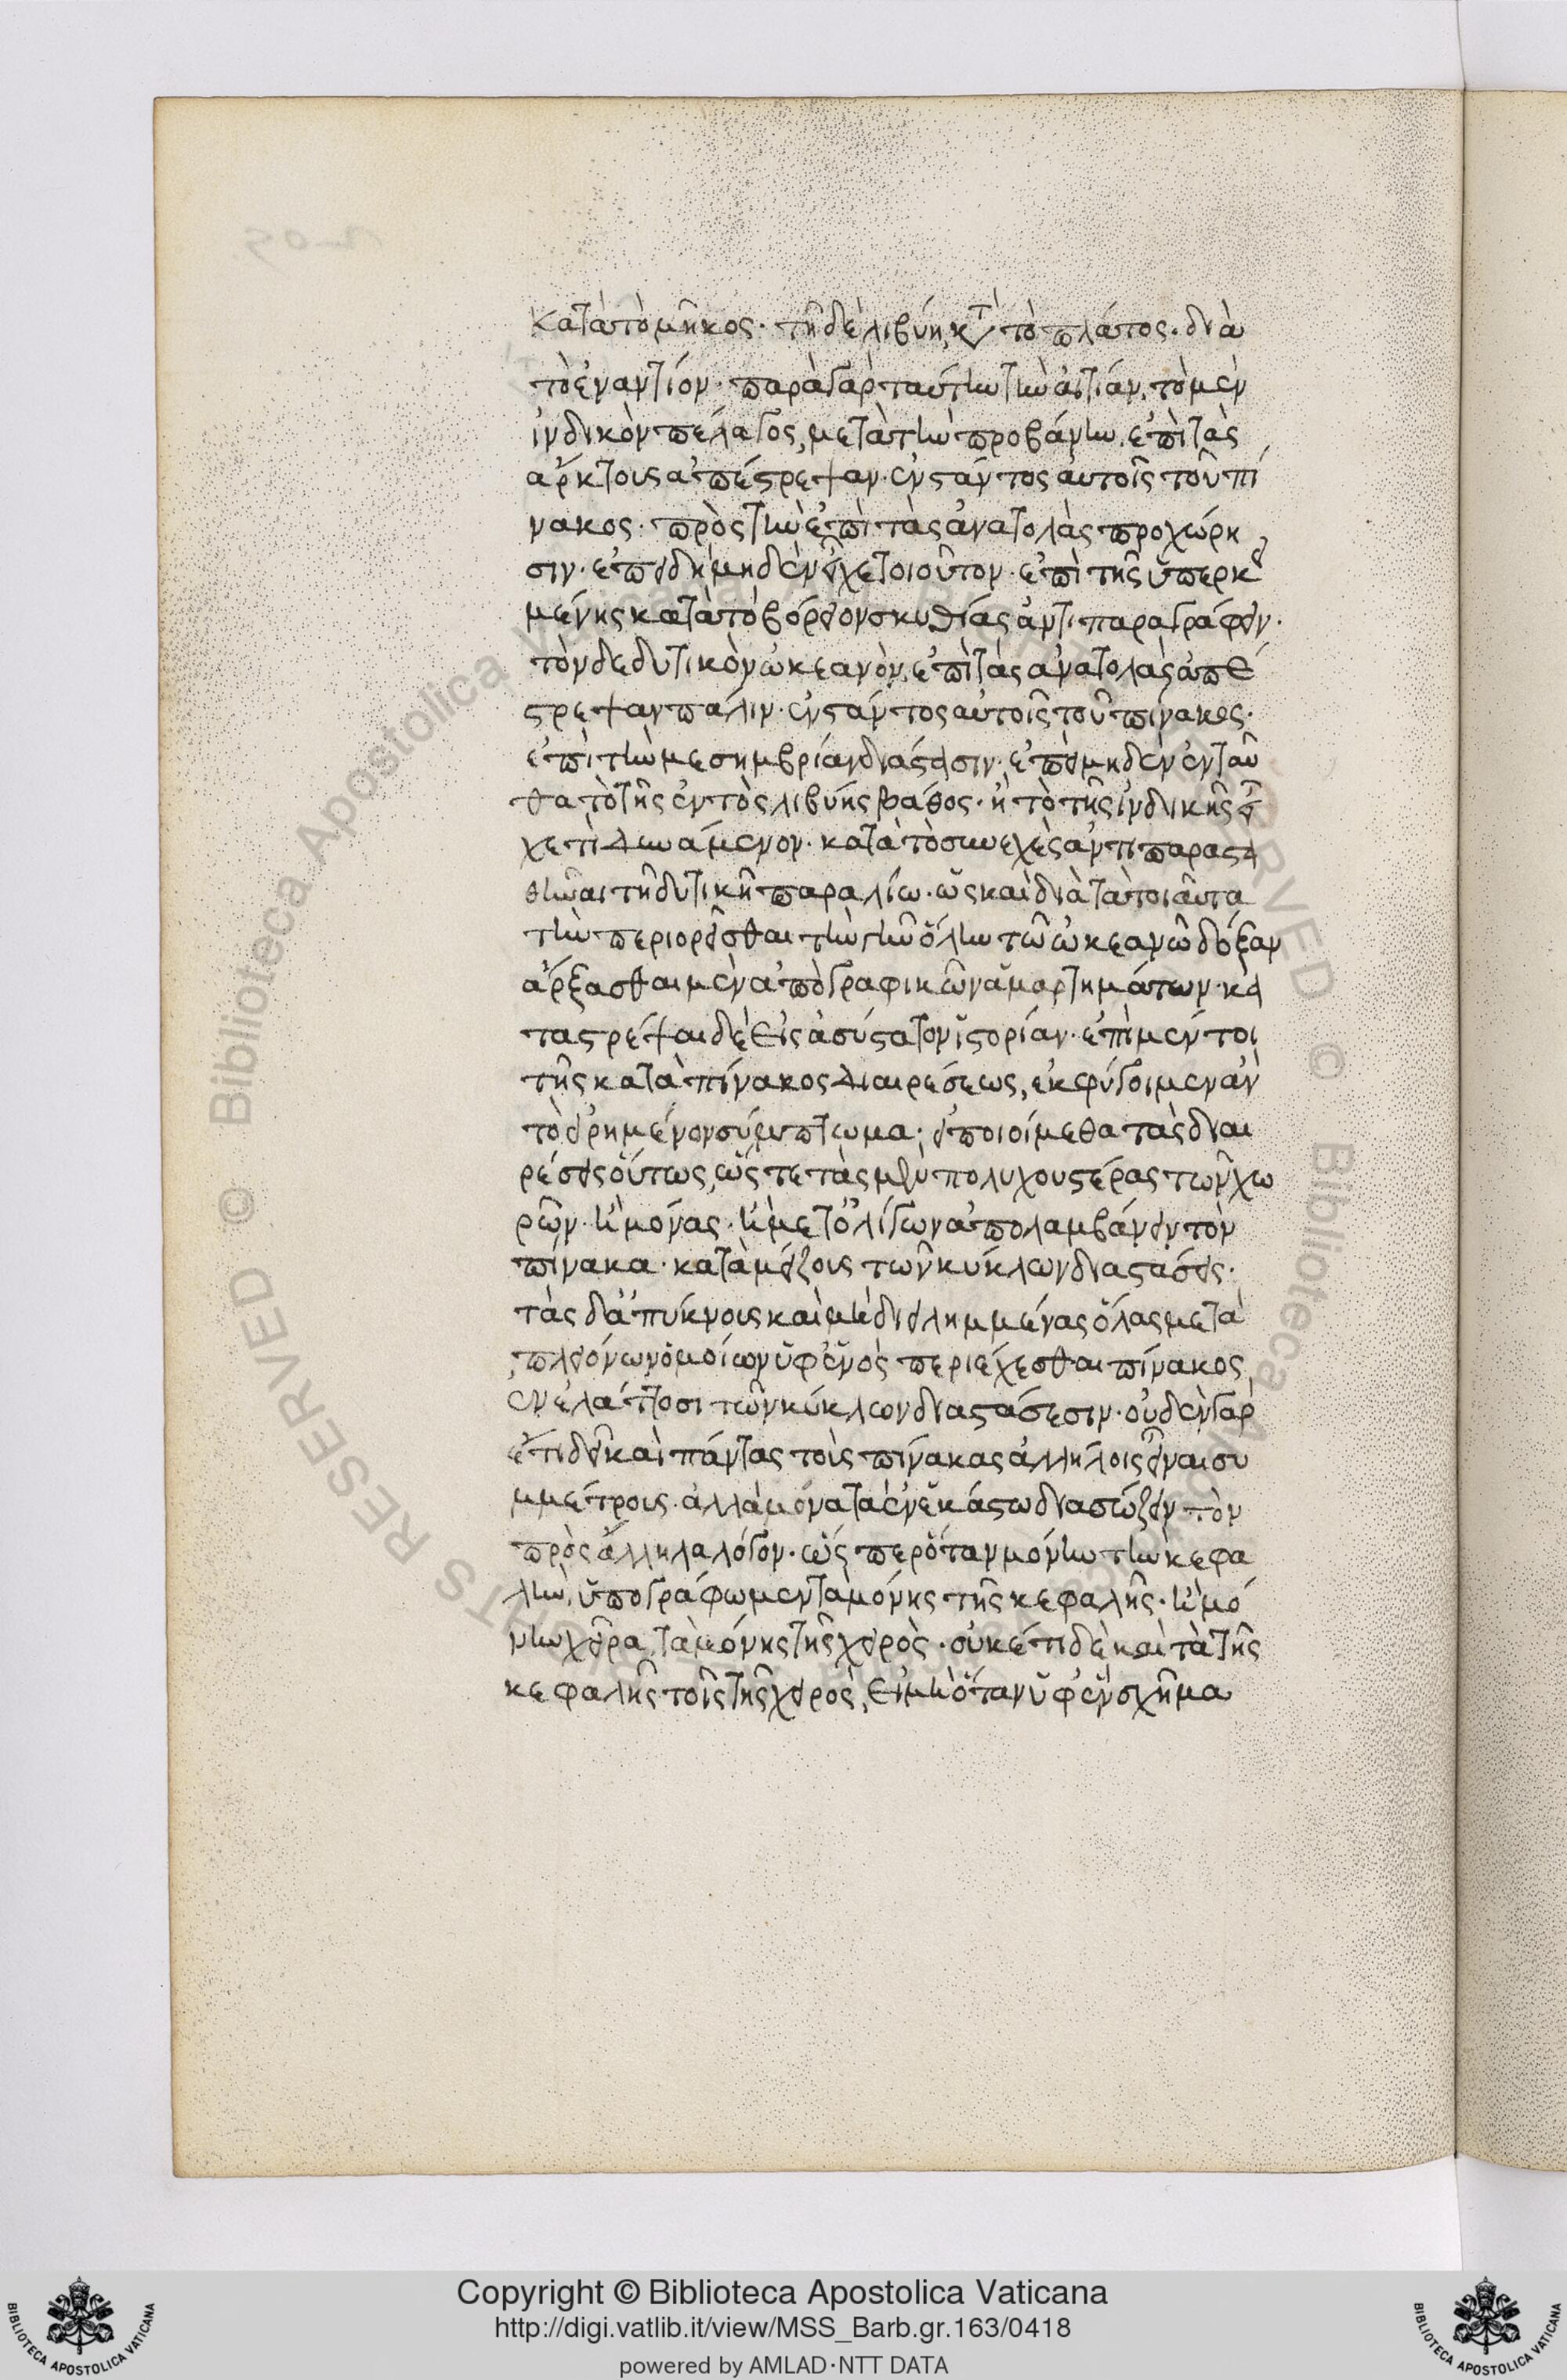 κατὰ τὸ μῆκος· τῆ δὲ λιβύη, κατὰ τὸ πλάτος· διὰ
τὸ ἐναντίον· παρὰ γὰρ ταύτην τὴν αἰτίαν, τὸ μὲν
ἰνδικὸν πέλαγος, μετὰ τὴν προβάνην, ἐπὶ τὰς
ἄρκτους ἀπέστρεψαν· ἐνστάντος αὐτοῖς τοῦ πί
νακος· πρὸς τὴν ἐπὶ τὰς ἀνατολὰς προχώρη
σιν· ἐπειδὴ μηδὲν εἶχε τοιοῦτον· ἐπὶ τῆς ὑπερκει
μένης κατὰ τὸ βόρειον σκυθίας ἀντιπαραγράφειν·
τὸν δὲ δυτικὸν ὠκεανὸν, ἐπὶ τὰς ἀνατολὰς ἀπέ
στρεψαν πάλιν· ἐνστάντος αὐτοῖς τοῦ πίνακος·
ἐπὶ τὴν μεσημβρίαν διάστασιν· ἐπεὶ μηδὲν ἐνταῦ
θα τὸ τῆς ἐντὸς λιβύης βάθος· ἢ τὸ τῆς ἰνδικῆς εἶ
χέ τι δυνάμενον· κατὰ τὸ συνεχὲς ἀντιπαραστα
θῆναι τῆ δυτικῆ παραλίω· ὡς καὶ διὰ τὰ τοιαῦτα
τὴν περιορεῖσθαι τὴν γῆν ὅλην τῶ ὠκεανῶ δόξαν
ἄρξασθαι μὲν ἀπὸ γραφικῶν ἁμαρτημάτων· κα
ταστρέψαι δὲ εἰς ἀσύστατον ἱστορίαν· ἐπὶ μέν τοι
τῆς κατὰ πίνακος διαιρέσεως, ἐκφύγοιμεν ἂν
τὸ εἰρημένον σύμπτωμα· εἰ ποιοίμεθα τὰς διαι
ρέσεις οὕτως, ὥς τε τὰς μὲν πολυχουστέρας τῶν χω
ρῶν· ἢ μόνας· ἢ μετ' ὀλίγων ἀπολαμβάνειν τὸν
πίνακα· κατὰ μείζους τῶν κύκλων διαστάσεις·
τὰς δ' ἀπύκνους καὶ μὴ διειλημμένας ὅλας μετὰ
πλειόνων ὁμοίων ὑφ' ἑνὸς περιέχεσθαι πίνακος
ἐν ἐλάττοσι τῶν κύκλων διαστάσεσιν· οὐδὲν γὰρ
ἔτι δεῖ καὶ πάντας τοὺς πίνακας ἀλλήλοις εἶναι συ
μμέτρους· ἀλλὰ μόνα τὰ ἐν ἑκάστω διασώζειν τὸν
πρὸς ἄλληλα λόγον· ὥς περ ὅταν μόνην τὴν κεφα
λὴν, ὑπογράφωμεν τὰ μόνης τῆς κεφαλῆς· ἢ μό
νην χεῖρα, τὰ μόνης τῆς χειρὸς· οὐκέτι δὲ καὶ τὰ τῆς
κεφαλῆς τοῖς τῆς χειρὸς, εἰ μὴ ὅταν ὑφ' ἓν σχῆμα
Copyright © Biblioteca Apostolica Vaticana
http://digi.vatlib.it/view/MSS_Barb.gr.163/0418
powered by AMLAD·NTT DATA